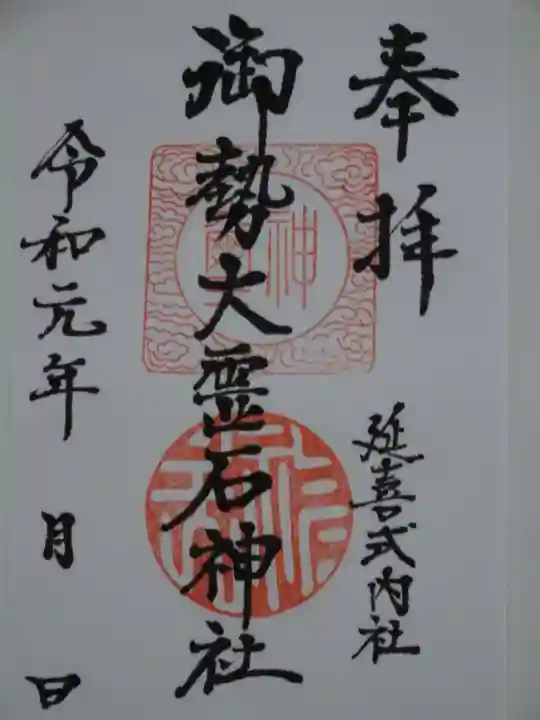 奉拝
延喜式内社
御勢大霊石神社
神
令和元年 月 日